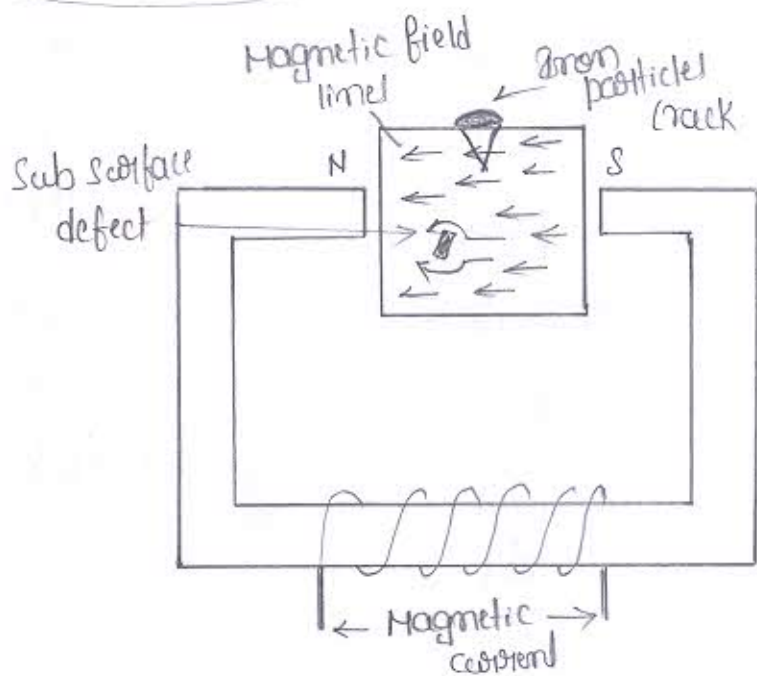 Magnetic field
lines
Iron
particles
crack
N
S
Sub surface
defect
Magnetic
current